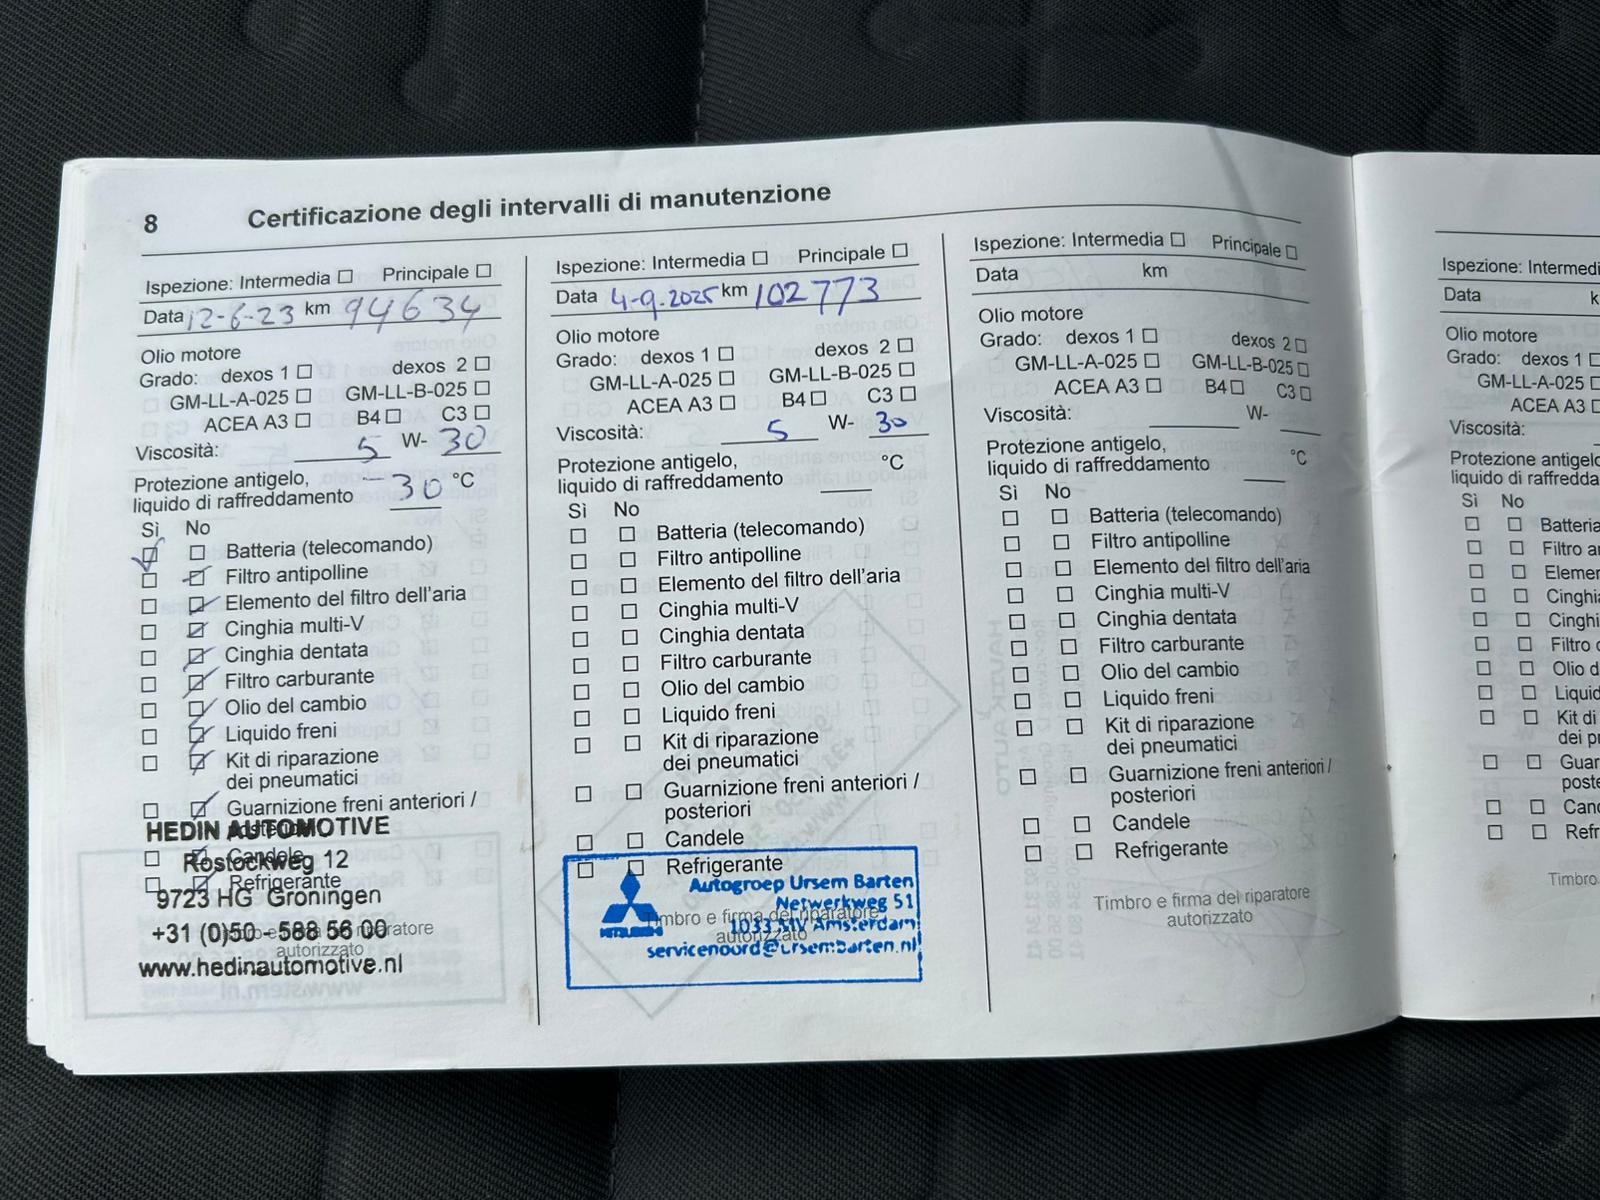 8 Certificazione degli intervalli di manutenzione
Ispezione: Intermedia ☐ Principale ☐
Data 12-6-23 km 94634
Olio motore
Grado: dexos 1 ☐ dexos 2 ☐
GM-LL-A-025 ☐ GM-LL-B-025 ☐
ACEA A3 ☐ B4 ☐ C3 ☐
Viscosità: 5 W- 30
Protezione antigelo,
liquido di raffreddamento -30 °C
Sì No
Batteria (telecomando)
Filtro antipolline
Elemento del filtro dell'aria
Cinghia multi-V
Cinghia dentata
Filtro carburante
Olio del cambio
Liquido freni
Kit di riparazione
dei pneumatici
Guarnizione freni anteriori /
posteriori
Candele
Refrigerante
autorizzato
HEDIN AUTOMOTIVE
Rostockweg 12
9723 HG Groningen
+31 (0)50 - 588 56 00
www.hedinautomotive.nl
Ispezione: Intermedia ☐ Principale ☐
Data 4-9-2025 km 102773
Olio motore
Grado: dexos 1 ☐ dexos 2 ☐
GM-LL-A-025 ☐ GM-LL-B-025 ☐
ACEA A3 ☐ B4 ☐ C3 ☐
Viscosità: 5 W- 30
Protezione antigelo,
liquido di raffreddamento °C
Sì No
Batteria (telecomando)
Filtro antipolline
Elemento del filtro dell'aria
Cinghia multi-V
Cinghia dentata
Filtro carburante
Olio del cambio
Liquido freni
Kit di riparazione
dei pneumatici
Guarnizione freni anteriori /
posteriori
Candele
Refrigerante
Timbro e firma del riparatore
autorizzato
Autogroep Ursem Barten
Netwerkweg 51
1033 MV Amsterdam
servicenoord@ursembarten.nl
MITSUBISHI
Ispezione: Intermedia ☐ Principale ☐
Data km
Olio motore
Grado: dexos 1 ☐ dexos 2 ☐
GM-LL-A-025 ☐ GM-LL-B-025 ☐
ACEA A3 ☐ B4 ☐ C3 ☐
Viscosità: W-
Protezione antigelo,
liquido di raffreddamento °C
Sì No
Batteria (telecomando)
Filtro antipolline
Elemento del filtro dell'aria
Cinghia multi-V
Cinghia dentata
Filtro carburante
Olio del cambio
Liquido freni
Kit di riparazione
dei pneumatici
Guarnizione freni anteriori /
posteriori
Candele
Refrigerante
Timbro e firma del riparatore
autorizzato
Ispezione: Intermedi
Data k
Olio motore
Grado: dexos 1
GM-LL-A-025
ACEA A3
Viscosità:
Protezione antigelo
liquido di raffredda
Sì No
Batteria
Filtro a
Elemen
Cinghi
Cinghi
Filtro
Olio d
Liquid
Kit di
dei p
Guar
poste
Cand
Refr
Timbro